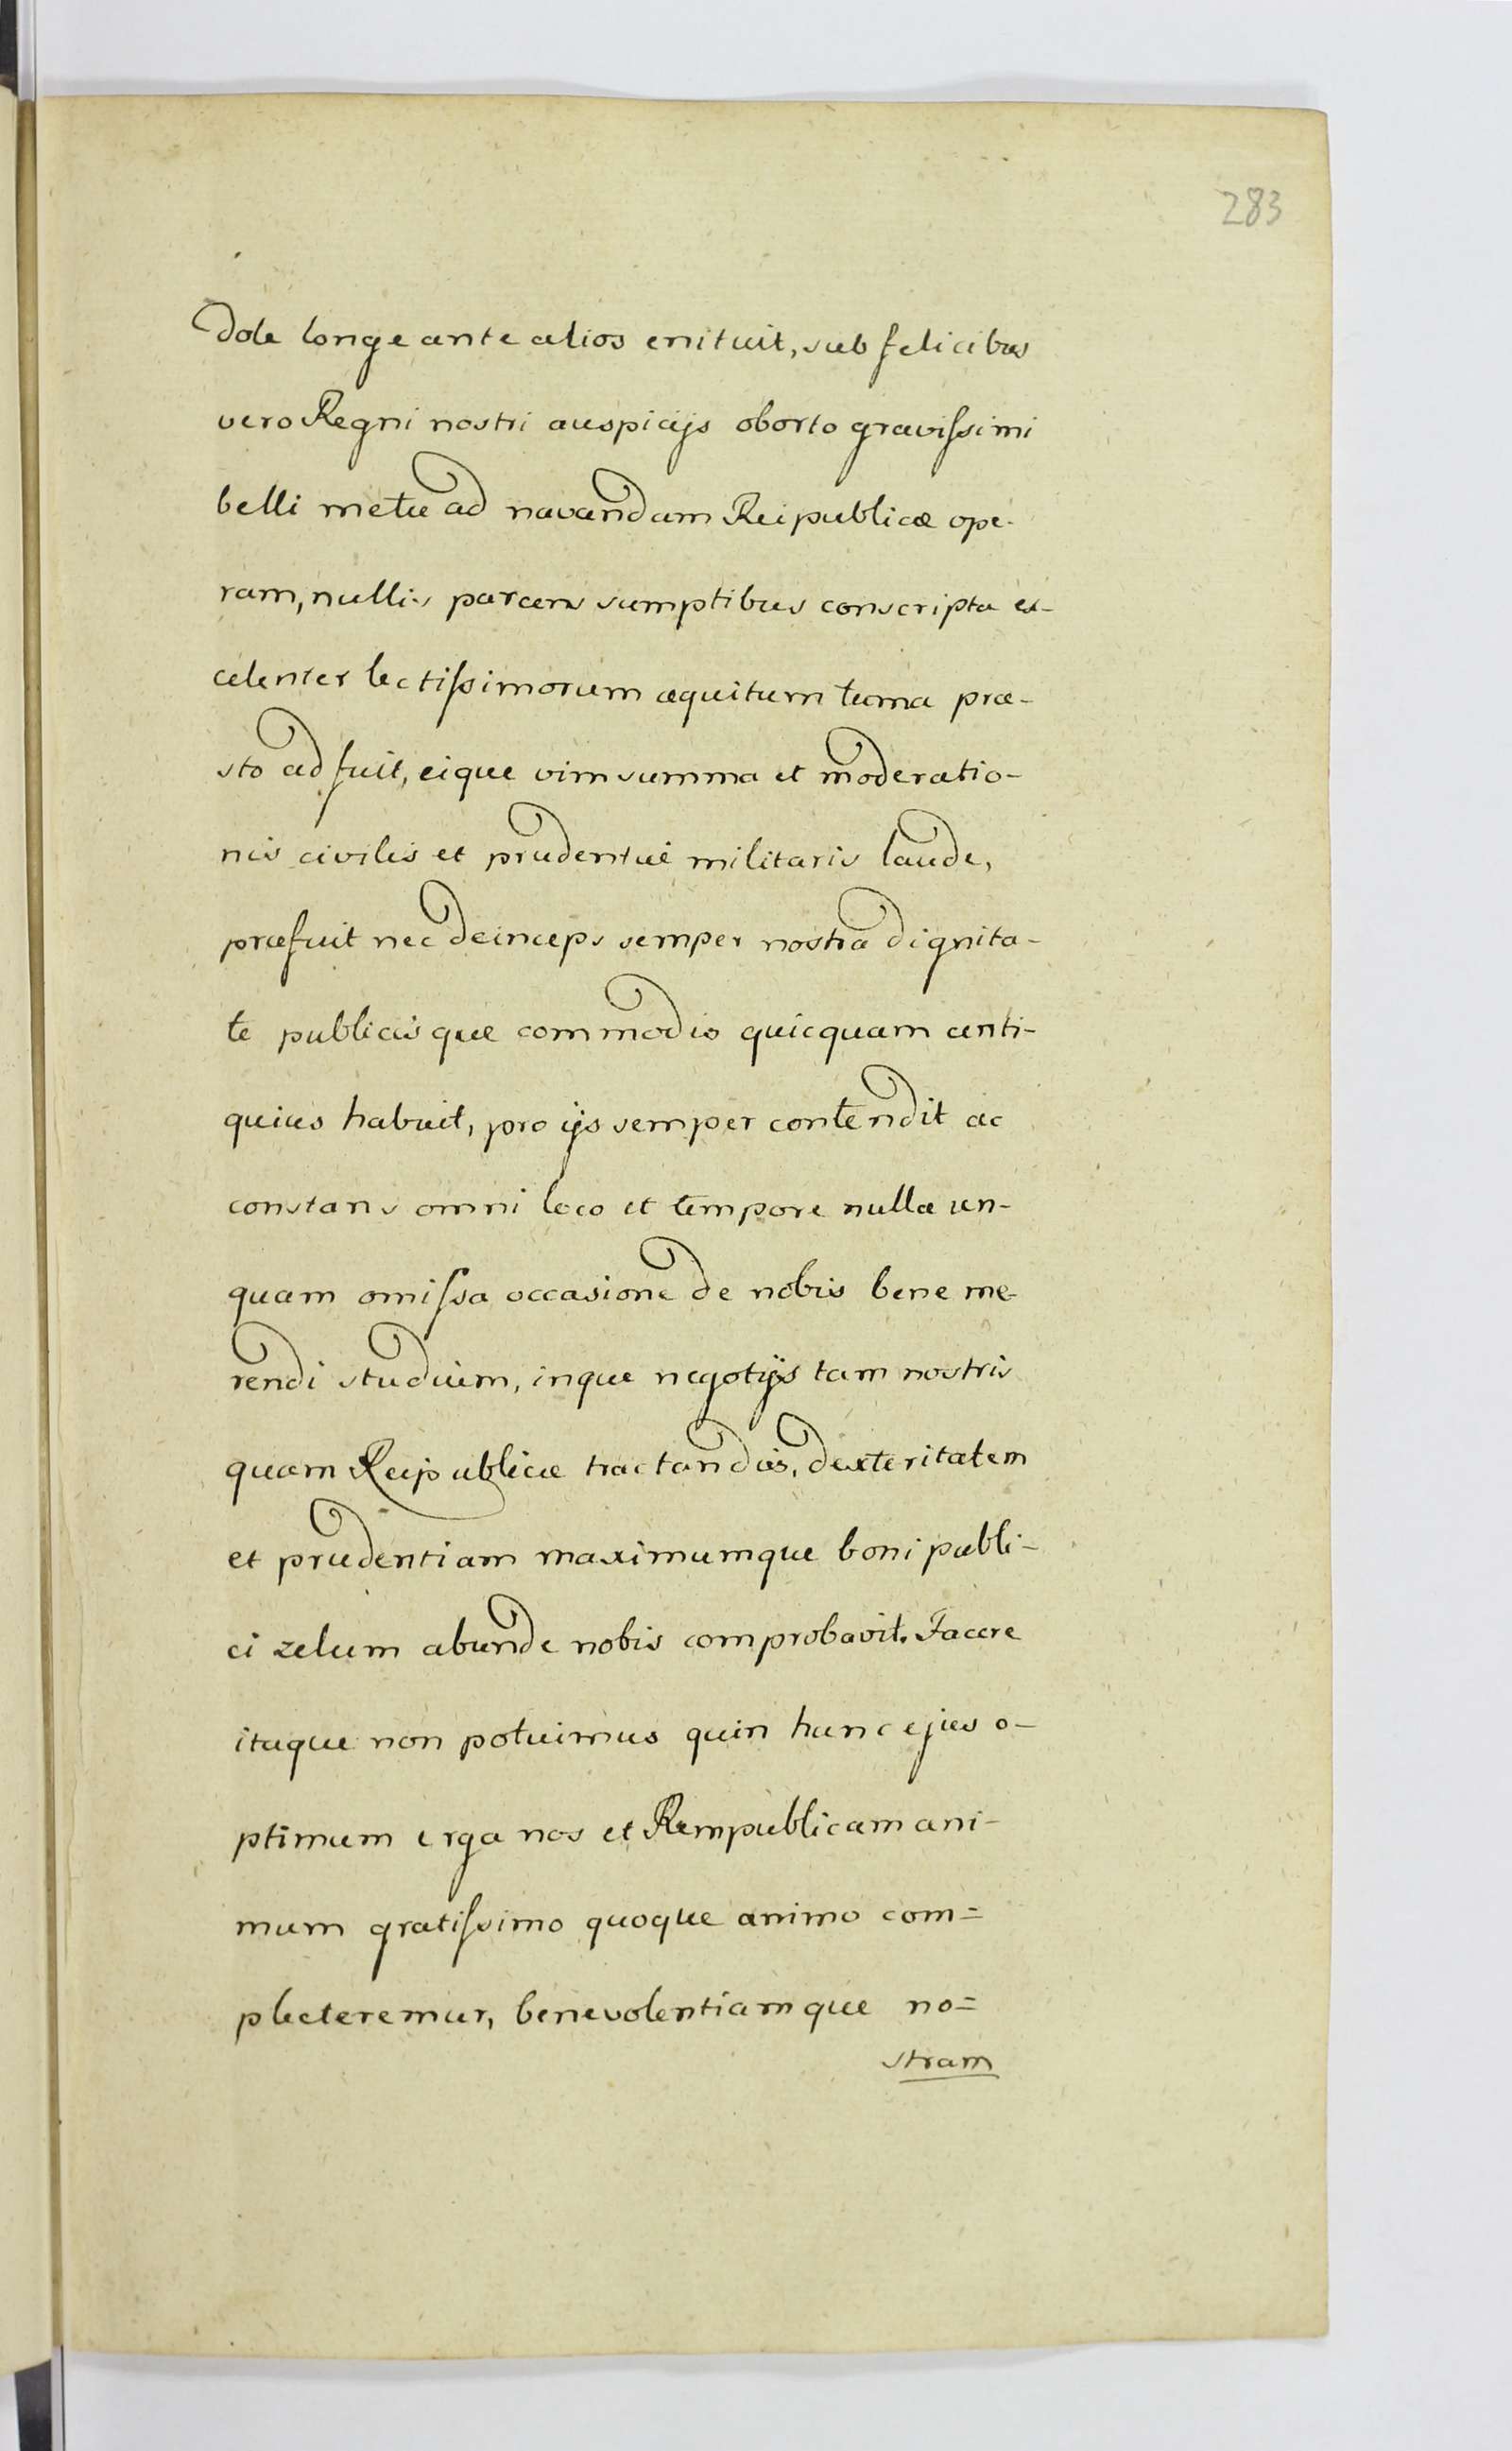 283
dole longe ante alios enituit, sub felicibus
vero Regni nostri auspicijs oborto gravissimi
belli metu ad navandam Reipublicæ ope-
ram, nullis parcens sumptibus conscripta ex-
celenter lectissimorum æquitum turma præ-
sto adfuit, eique vim summa et moderatio-
nis civilis et prudentiæ militaris laude,
præfuit nec deinceps semper nostra dignita-
te publicisque commodis quicquam anti-
quius habuit, pro ijs semper contendit ac
constans omni loco et tempore nulla un-
quam omissa occasione de nobis bene me-
rendi studium, inque negotijs tam nostris
quam Reipublicæ tractandis, dexteritatem
et prudentiam maximumque boni publi-
ci zelum abunde nobis comprobavit. Facere
itaque non potuimus quin hunc ejus o-
ptimum erga nos et Rempublicam ani-
mum gratissimo quoque animo com=
plecteremur, benevolentiamque no=
stram